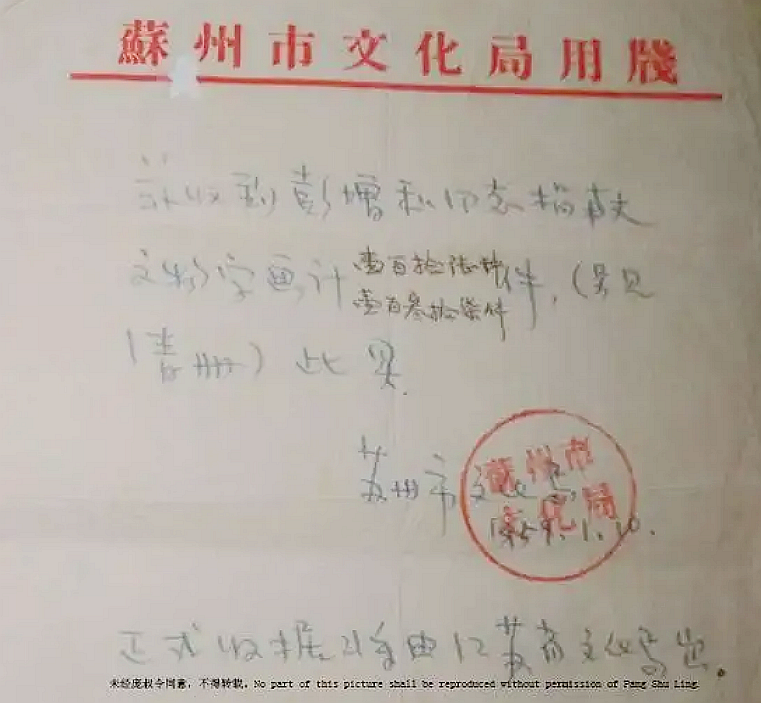 蘇州市文化局用牋
兹收到彭增和同志捐献
文物字画计
壹百叁拾柒件
件，（另见
（清册）此具.
苏州市文化局
1959.1.10.
蘇州市
文化局
正式收据将由江苏省文化局出。
未经庞权令同意，不得转载。No part of this picture shall be reproduced without permission of Pang Shu Ling